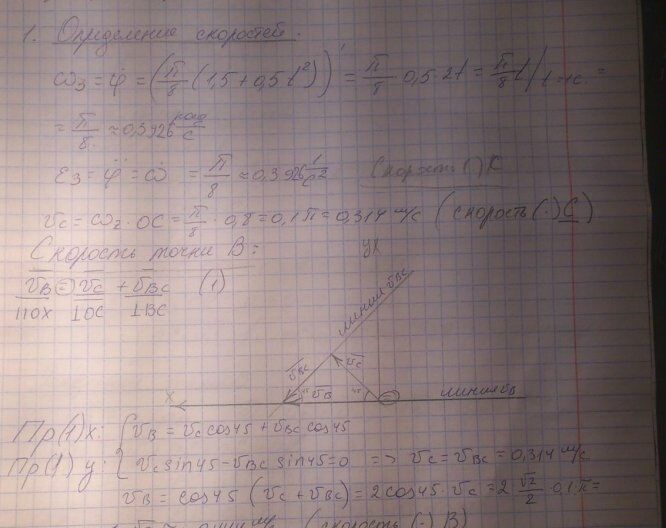 1. Определение скоростей.
ω₃ = φ̇ = (π/8 (1,5 + 0,5t²))' = π/8 · 0,5 · 2t = π/8 t /t=1c. =
= π/8 ≈ 0,3926 рад/с
ε₃ = φ̈ = ω̇ = π/8 ≈ 0,3926 1/с²
Скорость (·) К
υc = ω₂ · OC = π/8 · 0,8 = 0,1π = 0,314 м/с (скорость (·) C)
Скорость точки В:
υB = υc + υBC (1)
||OX ⊥OC ⊥BC
y
линия υBC
υBC
υc
x
45
υB
45
линия υB
Пр(1)x: { υB = υc cos45 + υBC cos45
Пр(1) y: { υc sin45 - υBC sin45 = 0 => υc = υBC = 0,314 м/с
υB = cos45 (υc + υBC) = 2cos45 · υc = 2 √2/2 · 0,1π =
(скорость (·) В)